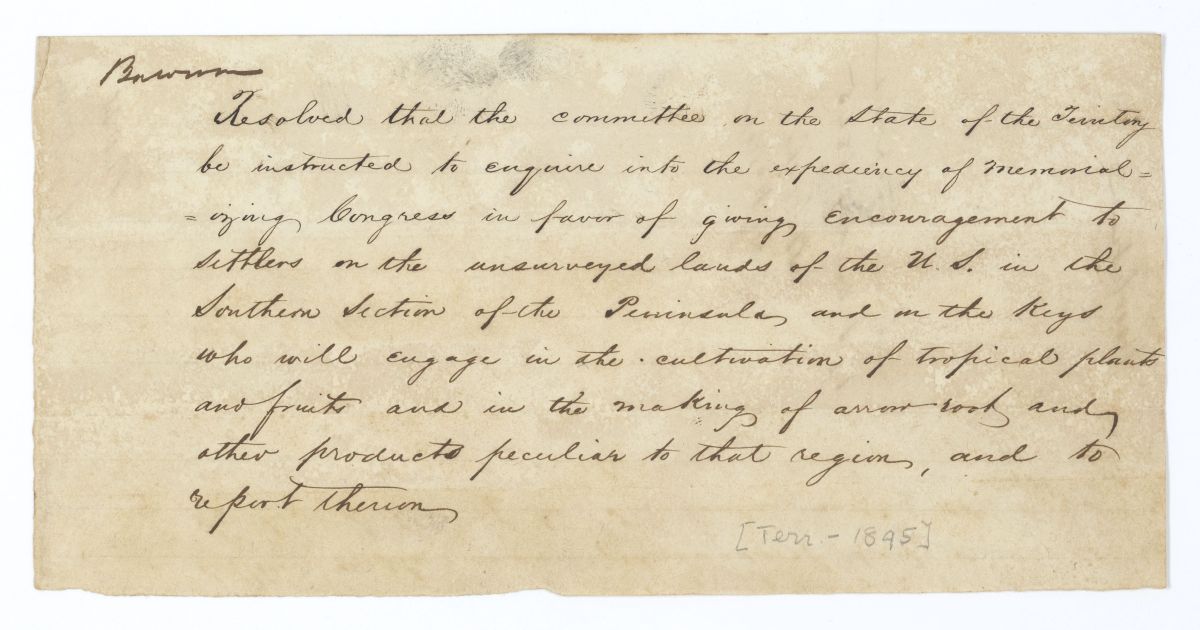 Brown
Resolved that the committee on the State of the Territory
be instructed to enquire into the expediency of memorial=
=izing Congress in favor of giving encouragement to
settlers on the unsurveyed lands of the U. S. in the
Southern Section of the Peninsula, and on the Keys
who will engage in the cultivation of tropical plants
and fruits and in the making of arrow root and
other products peculiar to that region, and to
report thereon
[Terr. - 1845]